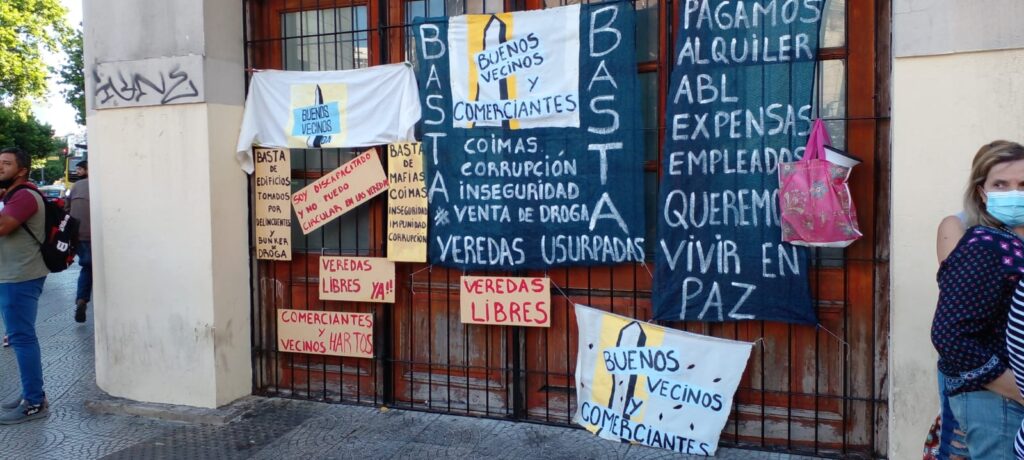 BUENOS
VECINOS
BASTA
DE
EDIFICIOS
TOMADOS
POR
DELINCUENTES
Y
BUNKER
DE
DROGA
SOY DISCAPACITADO
Y NO PUEDO
CIRCULAR EN LAS VEREDAS
BASTA DE
MAFIAS
COIMAS
INSEGURIDAD
IMPUNIDAD
CORRUPCIÓN
VEREDAS
LIBRES YA!!
COMERCIANTES
Y
VECINOS HARTOS
BASTA
BUENOS
VECINOS
Y
COMERCIANTES
BASTA
COIMAS
CORRUPCIÓN
INSEGURIDAD
* VENTA DE DROGA
VEREDAS USURPADAS
VEREDAS
LIBRES
PAGAMOS
ALQUILER
ABL
EXPENSAS
EMPLEADOS
QUEREMO
VIVIR EN
PAZ
BUENOS
VECINOS
Y
COMERCIANTES